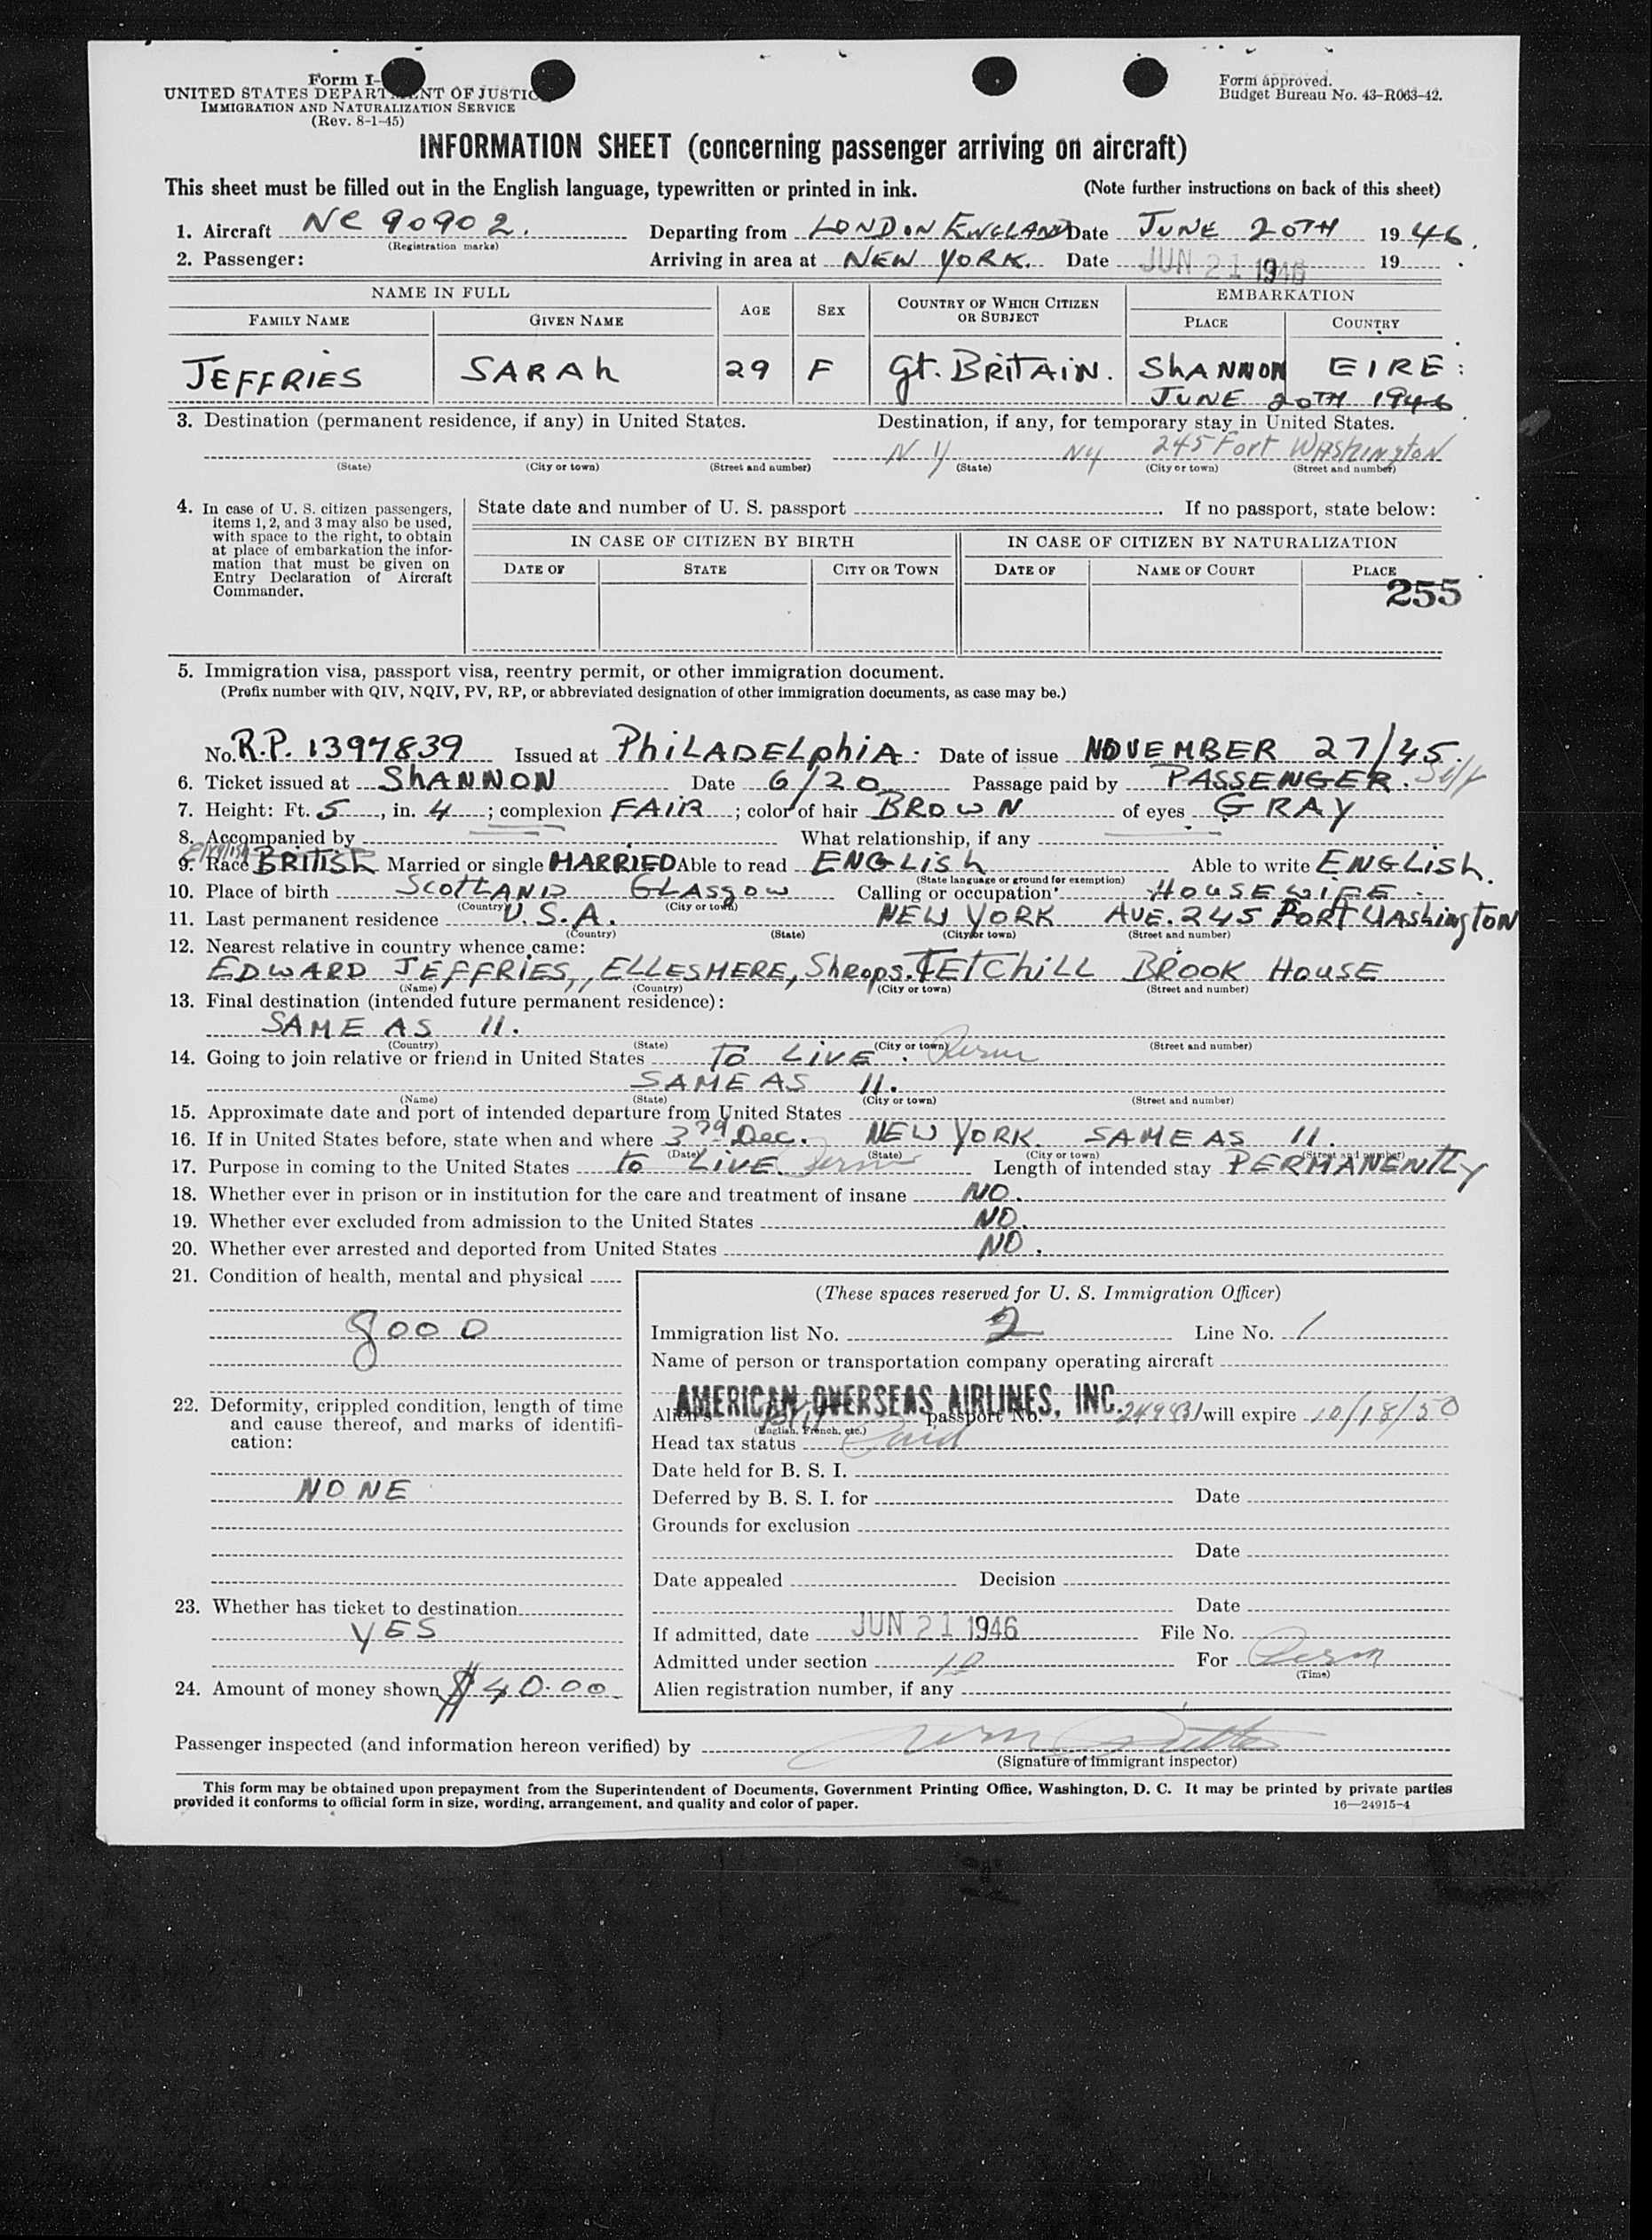 Form I-
UNITED STATES DEPARTMENT OF JUSTICE
IMMIGRATION AND NATURALIZATION SERVICE
(Rev. 8-1-45)
Form approved.
Budget Bureau No. 43-R063-42.
INFORMATION SHEET (concerning passenger arriving on aircraft)
This sheet must be filled out in the English language, typewritten or printed in ink. (Note further instructions on back of this sheet)
1. Aircraft NC 90902. Departing from LONDON ENGLAND Date JUNE 20TH 1946.
(Registration marks)
2. Passenger: Arriving in area at NEW YORK. Date JUN 21 1946 19
NAME IN FULL AGE SEX COUNTRY OF WHICH CITIZEN OR SUBJECT EMBARKATION
FAMILY NAME GIVEN NAME PLACE COUNTRY
JEFFRIES SARAh 29 F Gt. BRITAIN. ShANNON EIRE:
JUNE 20TH 1946
3. Destination (permanent residence, if any) in United States. Destination, if any, for temporary stay in United States.
N Y NY 245 Fort WAShington
(State) (City or town) (Street and number) (State) (City or town) (Street and number)
4. In case of U. S. citizen passengers, items 1, 2, and 3 may also be used, with space to the right, to obtain at place of embarkation the information that must be given on Entry Declaration of Aircraft Commander.
State date and number of U. S. passport . If no passport, state below:
IN CASE OF CITIZEN BY BIRTH IN CASE OF CITIZEN BY NATURALIZATION
DATE OF STATE CITY OR TOWN DATE OF NAME OF COURT PLACE
255
5. Immigration visa, passport visa, reentry permit, or other immigration document.
(Prefix number with QIV, NQIV, PV, RP, or abbreviated designation of other immigration documents, as case may be.)
No. R.P. 1397839 Issued at PhiLADELphiA. Date of issue NOVEMBER 27/45.
6. Ticket issued at ShANNON Date 6/20 Passage paid by PASSENGER. Self
7. Height: Ft. 5, in. 4; complexion FAIR; color of hair BROWN of eyes GRAY
8. Accompanied by What relationship, if any
English
9. Race BRITISh Married or single MARRIED Able to read ENGLISh Able to write ENGLISh.
(State language or ground for exemption)
10. Place of birth SCOTLAND GLASgow Calling or occupation HOUSEWIFE.
(Country) (City or town)
11. Last permanent residence U.S.A. NEW YORK AVE. 245 FORT WAShington
(Country) (State) (City or town) (Street and number)
12. Nearest relative in country whence came:
EDWARD JEFFRIES, ELLESMERE, Shrops. TETChILL BROOK HOUSE
(Name) (Country) (City or town) (Street and number)
13. Final destination (intended future permanent residence):
SAME AS 11.
(Country) (State) (City or town) (Street and number)
14. Going to join relative or friend in United States TO LIVE. Perm
SAME AS 11.
(Name) (State) (City or town) (Street and number)
15. Approximate date and port of intended departure from United States
16. If in United States before, state when and where 3rd Dec. NEW YORK. SAME AS 11.
(Date) (State) (City or town) (Street and number)
17. Purpose in coming to the United States TO LIVE. Perm Length of intended stay PERMANENTLY
18. Whether ever in prison or in institution for the care and treatment of insane NO.
19. Whether ever excluded from admission to the United States NO.
20. Whether ever arrested and deported from United States NO.
21. Condition of health, mental and physical
gooD
22. Deformity, crippled condition, length of time and cause thereof, and marks of identification:
NONE
23. Whether has ticket to destination
YES
24. Amount of money shown $40.00
(These spaces reserved for U. S. Immigration Officer)
Immigration list No. 2 Line No. 1
Name of person or transportation company operating aircraft
AMERICAN OVERSEAS AIRLINES, INC.
Alien's Brit passport No. 249831 will expire 10/18/50
(English, French, etc.)
Head tax status Paid
Date held for B. S. I.
Deferred by B. S. I. for Date
Grounds for exclusion
Date
Date appealed Decision
Date
If admitted, date JUN 21 1946 File No.
Admitted under section 10 For Perm
(Time)
Alien registration number, if any
Passenger inspected (and information hereon verified) by
(Signature of immigrant inspector)
This form may be obtained upon prepayment from the Superintendent of Documents, Government Printing Office, Washington, D. C. It may be printed by private parties
provided it conforms to official form in size, wording, arrangement, and quality and color of paper. 16—24915-4